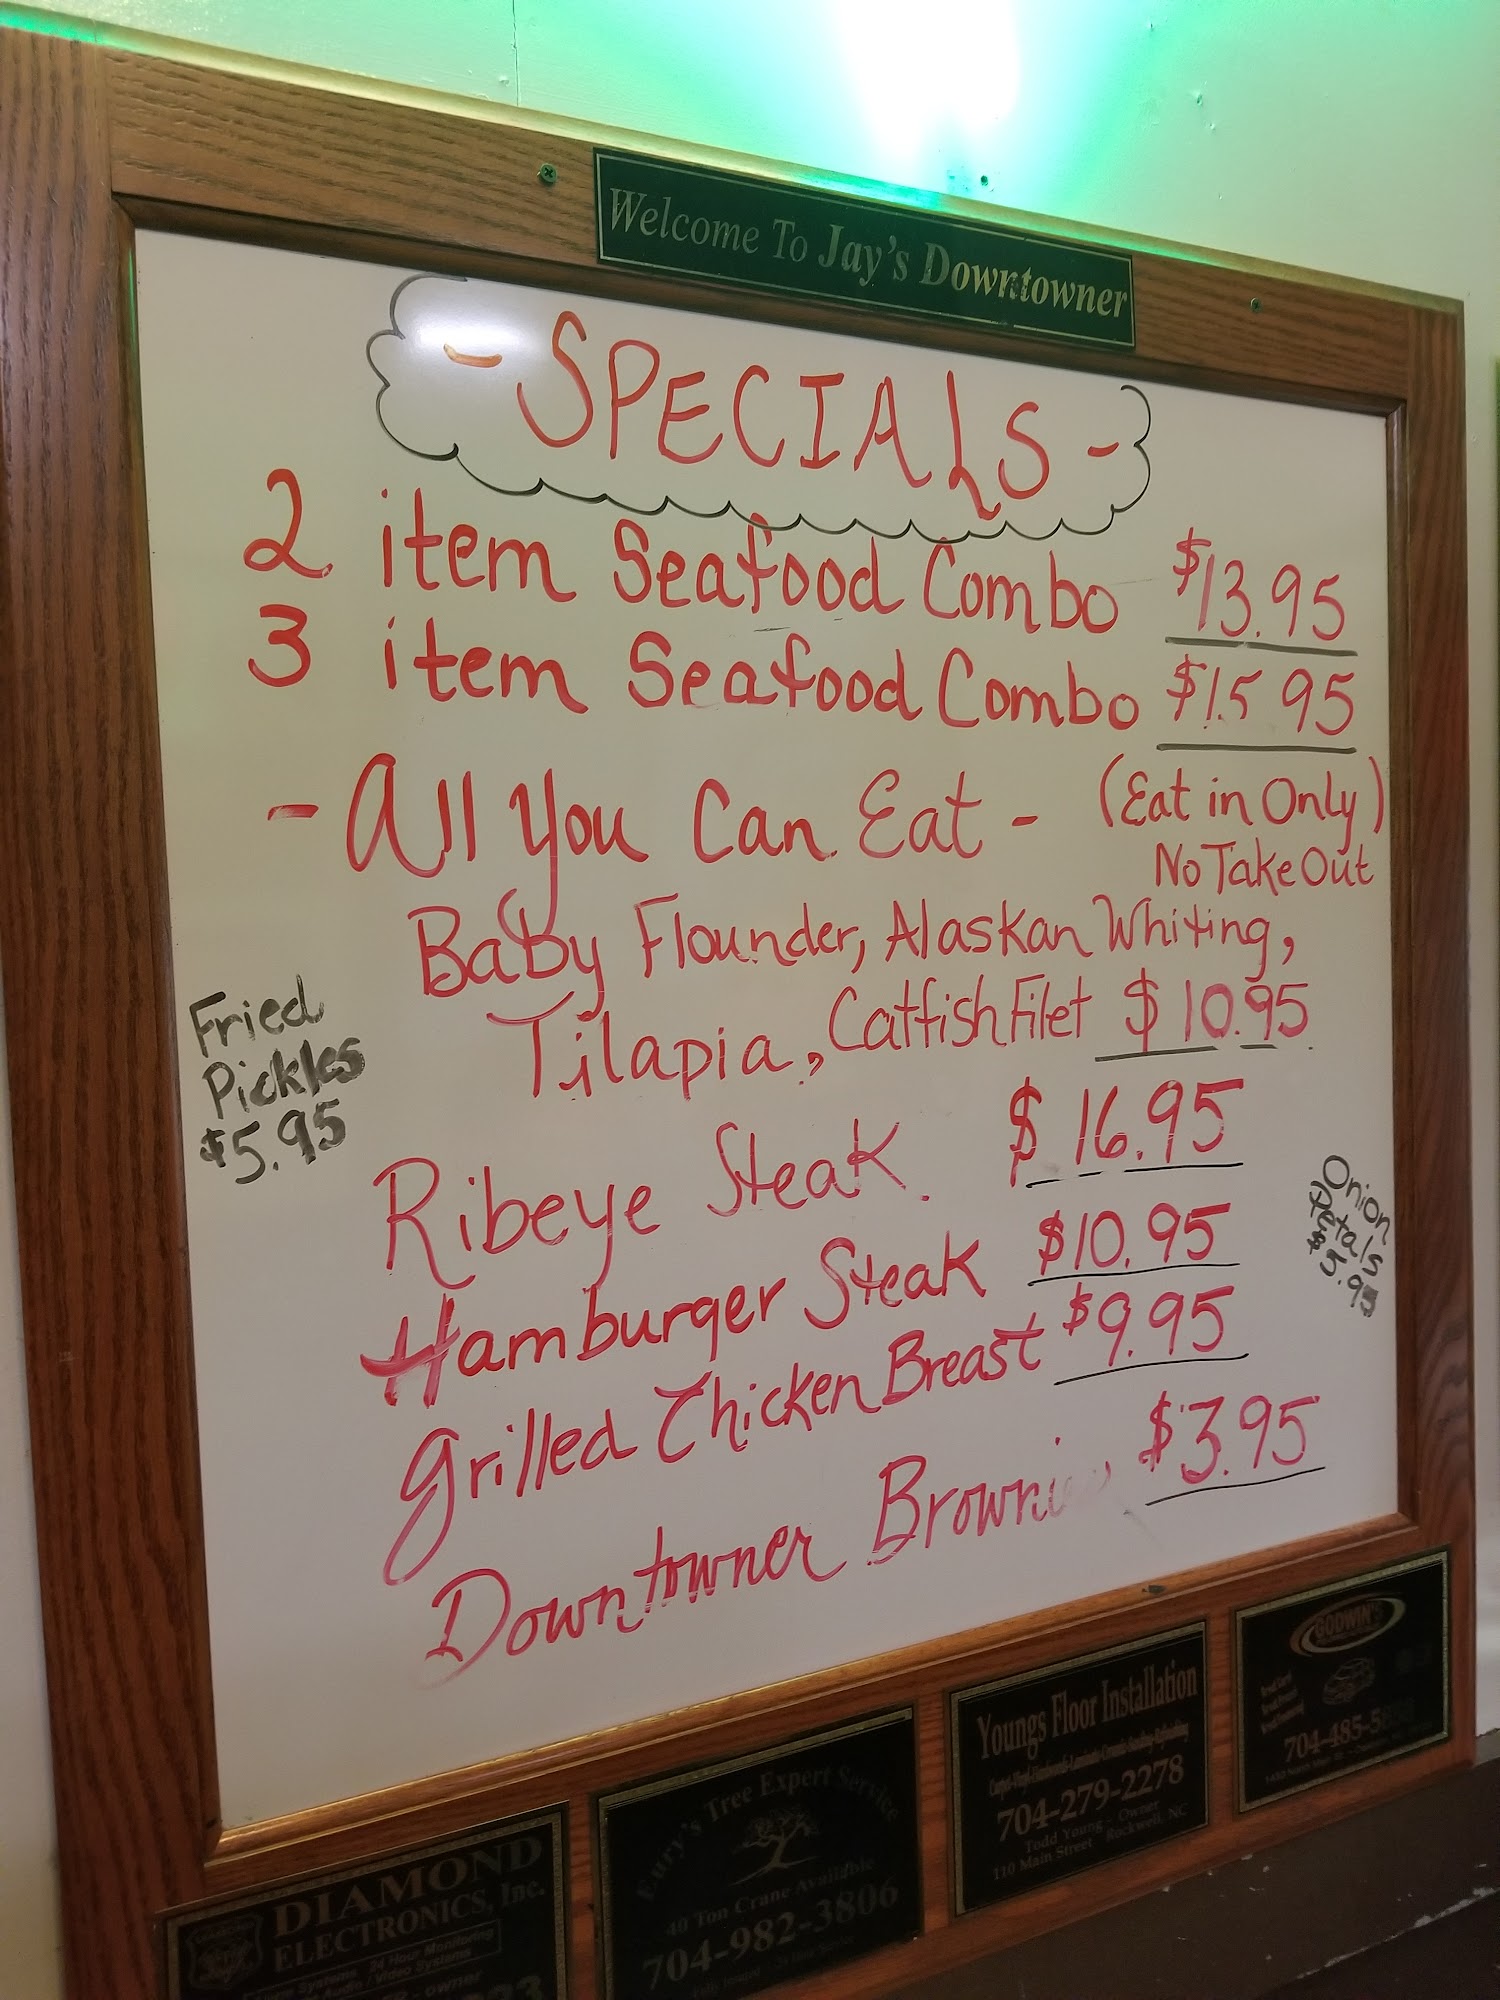 Welcome To Jay's Downtowner
- SPECIALS -
2 item Seafood Combo $13.95
3 item Seafood Combo $15.95
- All You Can Eat - (Eat in Only)
No Take Out
Baby Flounder, Alaskan Whiting,
Tilapia, Catfish Filet $10.95
Fried
Pickles
$5.95
Ribeye Steak $16.95
Onion
Petals
$5.95
Hamburger Steak $10.95
Grilled Chicken Breast $9.95
Downtowner Brownie $3.95
DIAMOND
ELECTRONICS, Inc.
Systems 24 Hour Monitoring
Audio / Video Systems
Eury's Tree Expert Service
40 Ton Crane Available
704-982-3806
Fully Insured
Youngs Floor Installation
704-279-2278
Todd Young - Owner
110 Main Street Rockwell, NC
GODWIN'S
704-485-5